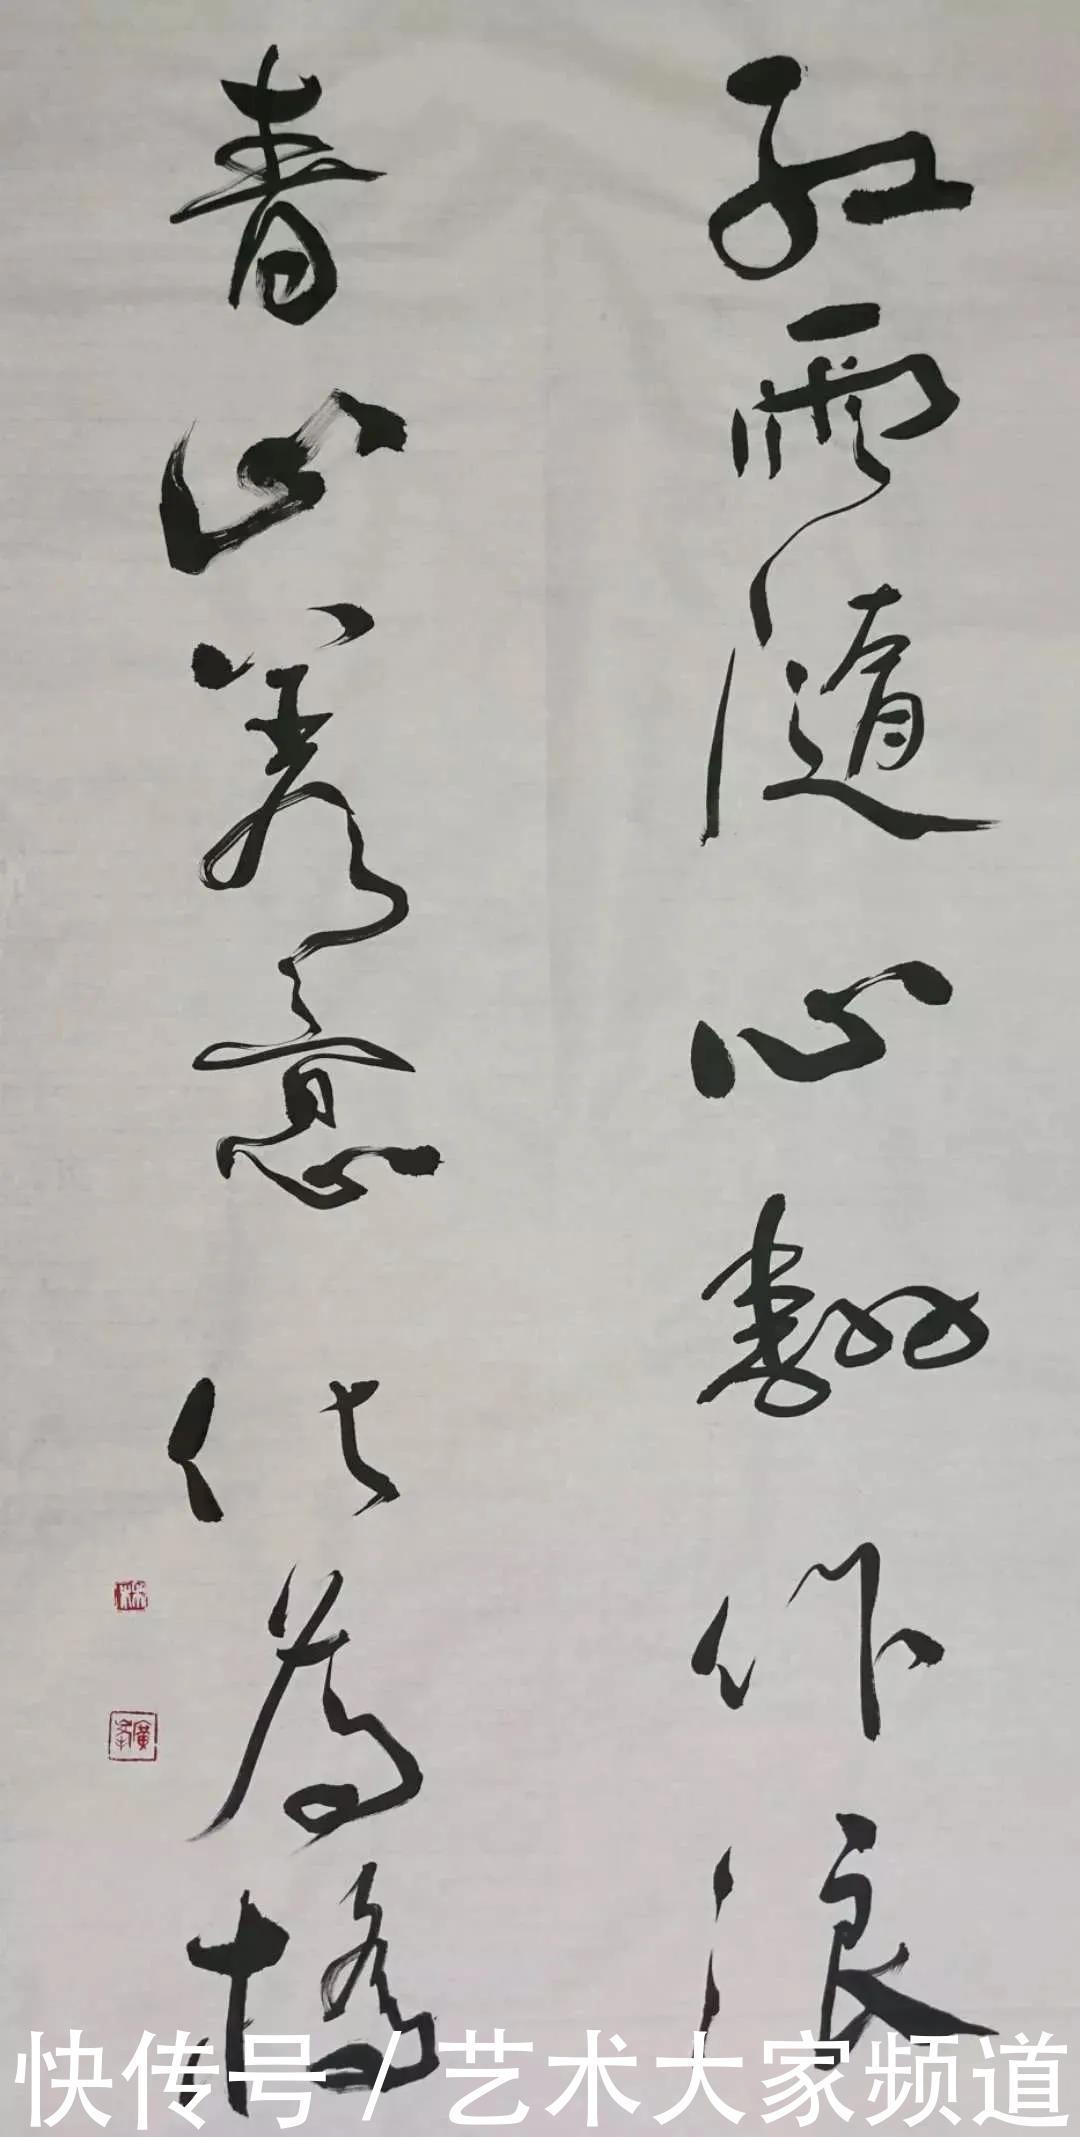 紅雨隨心翻作浪
青山着意化為橋
快传号 / 艺术大家频道